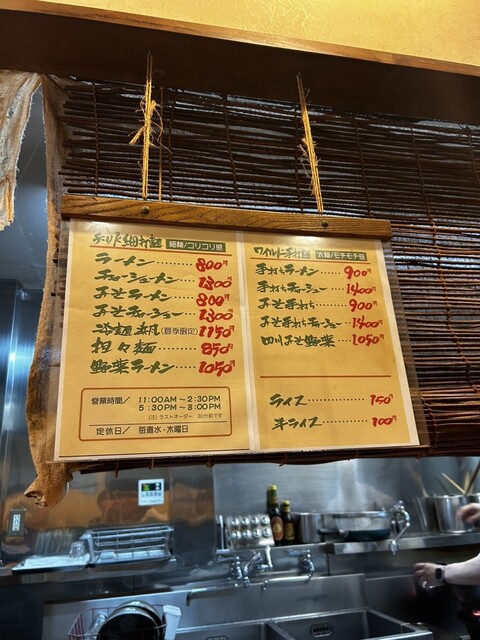 手打細打麺 細麺/コリコリ感
ラーメン………800円
チャーシューメン……1300円
みそラーメン……800円
みそチャーシュー……1300円
冷麺 (夏季限定) 1150円
担々麺………850円
野菜ラーメン……1050円
営業時間/ 11:00AM～2:30PM
5:30PM～8:00PM
(注)ラストオーダー 30分前です
定休日/ 毎週水・木曜日
ワイルド手打麺 太麺/モチモチ感
手打ちラーメン………900円
手打ちチャーシュー………1400円
みそ手打ち………900円
みそ手打ちチャーシュー……1400円
四川みそ野菜……1050円
ライス…………150円
半ライス…………100円